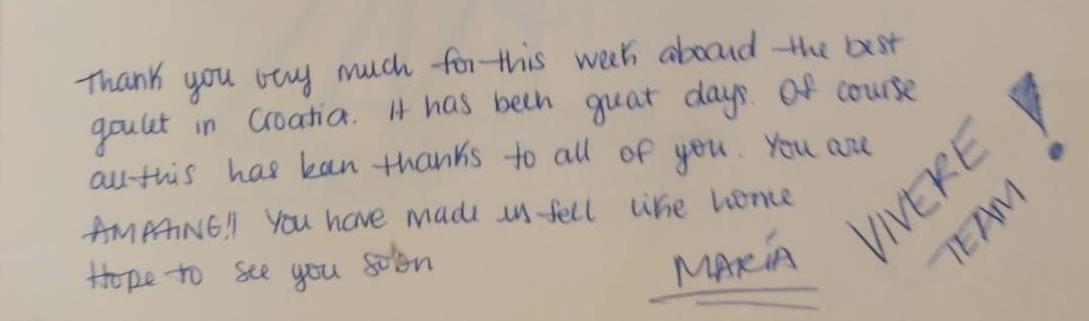 Thank you very much for this week aboard the best
goulet in Croatia. It has been great days. Of course
all this has been thanks to all of you. You are
AMAZING!! You have made us fell like home
Hope to see you soon
MARÍA
VIVERE
TEAM!